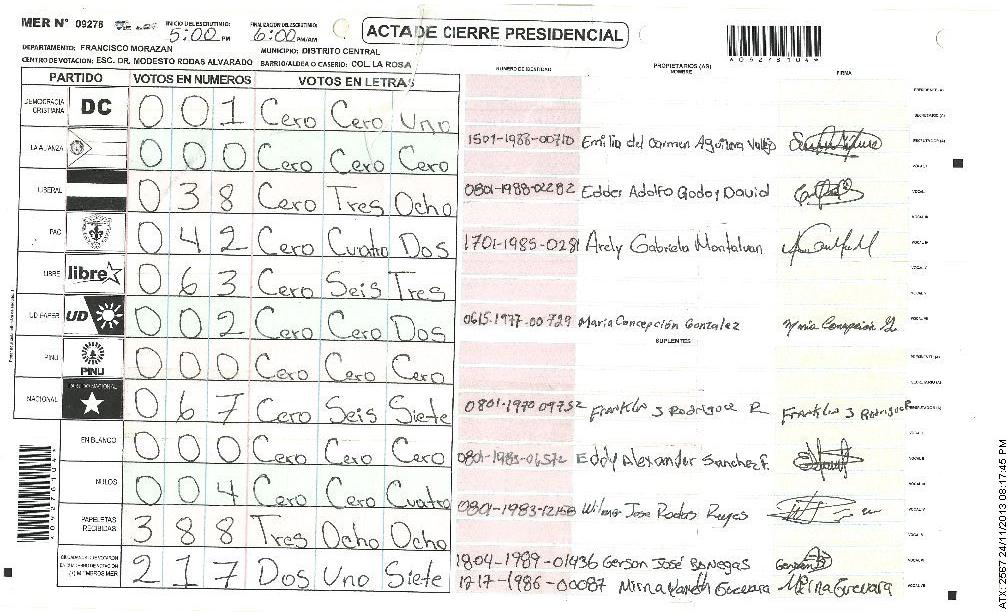 MER Nº 09278
INICIO DEL ESCRUTINIO: 5:00 PM
FINALIZACION DEL ESCRUTINIO: 6:00 PM/AM
ACTA DE CIERRE PRESIDENCIAL
DEPARTAMENTO: FRANCISCO MORAZAN
MUNICIPIO: DISTRITO CENTRAL
CENTRO DE VOTACION: ESC. DR. MODESTO RODAS ALVARADO BARRIO/ALDEA O CASERIO: COL. LA ROSA
PARTIDO VOTOS EN NUMEROS VOTOS EN LETRAS
DEMOCRACIA CRISTIANA DC 0 0 1 Cero Cero Uno
LA ALIANZA 0 0 0 Cero Cero Cero
LIBERAL 0 3 8 Cero Tres Ocho
PAC 0 4 2 Cero Cuatro Dos
LIBRE libre 0 6 3 Cero Seis Tres
UD FAPER UD 0 0 2 Cero Cero Dos
PINU PINU 0 0 0 Cero Cero Cero
NACIONAL 0 6 7 Cero Seis Siete
EN BLANCO 0 0 0 Cero Cero Cero
NULOS 0 0 4 Cero Cero Cuatro
PAPELETAS RECIBIDAS 3 8 8 Tres Ocho Ocho
2 1 7 Dos Uno Siete
NUMERO DE IDENTIDAD PROPIETARIOS (AS) NOMBRE FIRMA
1501-1988-00710 Emilia del Carmen Aguilera
0801-1988-02282 Eddes Adolfo Godoy David
1701-1985-0281 Arely Gabriela Montalvan
0615-1977-00729 Maria Concepción Gonzalez Maria Concepción
SUPLENTES
0801-1970 09752 Franklin J Rodriguez R Franklin J Rodriguez R
Eddy Alexander Sanchez F.
0801-1983-12158 Wilmer Jose Rodas Reyes
1804-1989-01436 Gerson José Banegas
1217-1986-00087 Mirna Guevara Mirna Guevara
ATX-2567 24/11/2013 08:17:45 PM